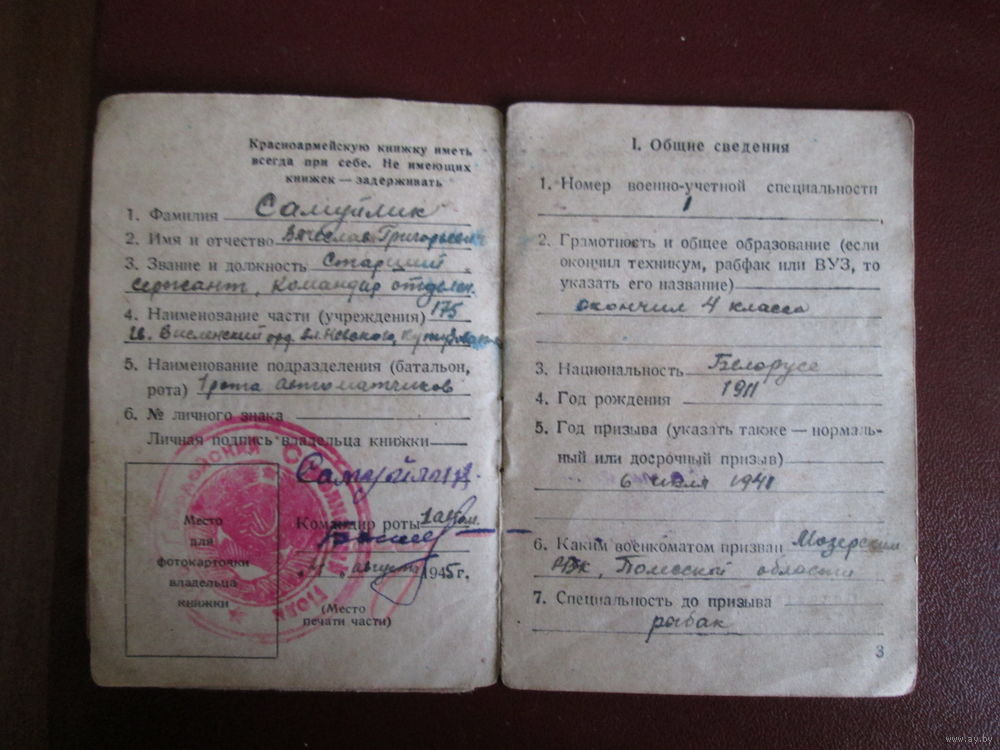 Красноармейскую книжку иметь
всегда при себе. Не имеющих
книжек — задерживать
1. Фамилия Самуйлик
2. Имя и отчество Вячеслав Григорьевич
3. Звание и должность Старший
сержант, командир отделен.
4. Наименование части (учреждения) 175
Гв. Висленский орд. Ал. Невского,
5. Наименование подразделения (батальон,
рота) 1 рота автоматчиков
6. № личного знака
Личная подпись владельца книжки
Самуйлик
Командир роты
августа 1945 г.
Место
для
фотокарточки
владельца
книжки
(Место
печати части)
I. Общие сведения
1. Номер военно-учетной специальности
1
2. Грамотность и общее образование (если
окончил техникум, рабфак или ВУЗ, то
указать его название)
окончил 4 класса
3. Национальность Белорусс
4. Год рождения 1911
5. Год призыва (указать также — нормаль-
ный или досрочный призыв)
6 июля 1941
6. Каким военкоматом призван
РВК, области
7. Специальность до призыва
рыбак
3
www.ay.by